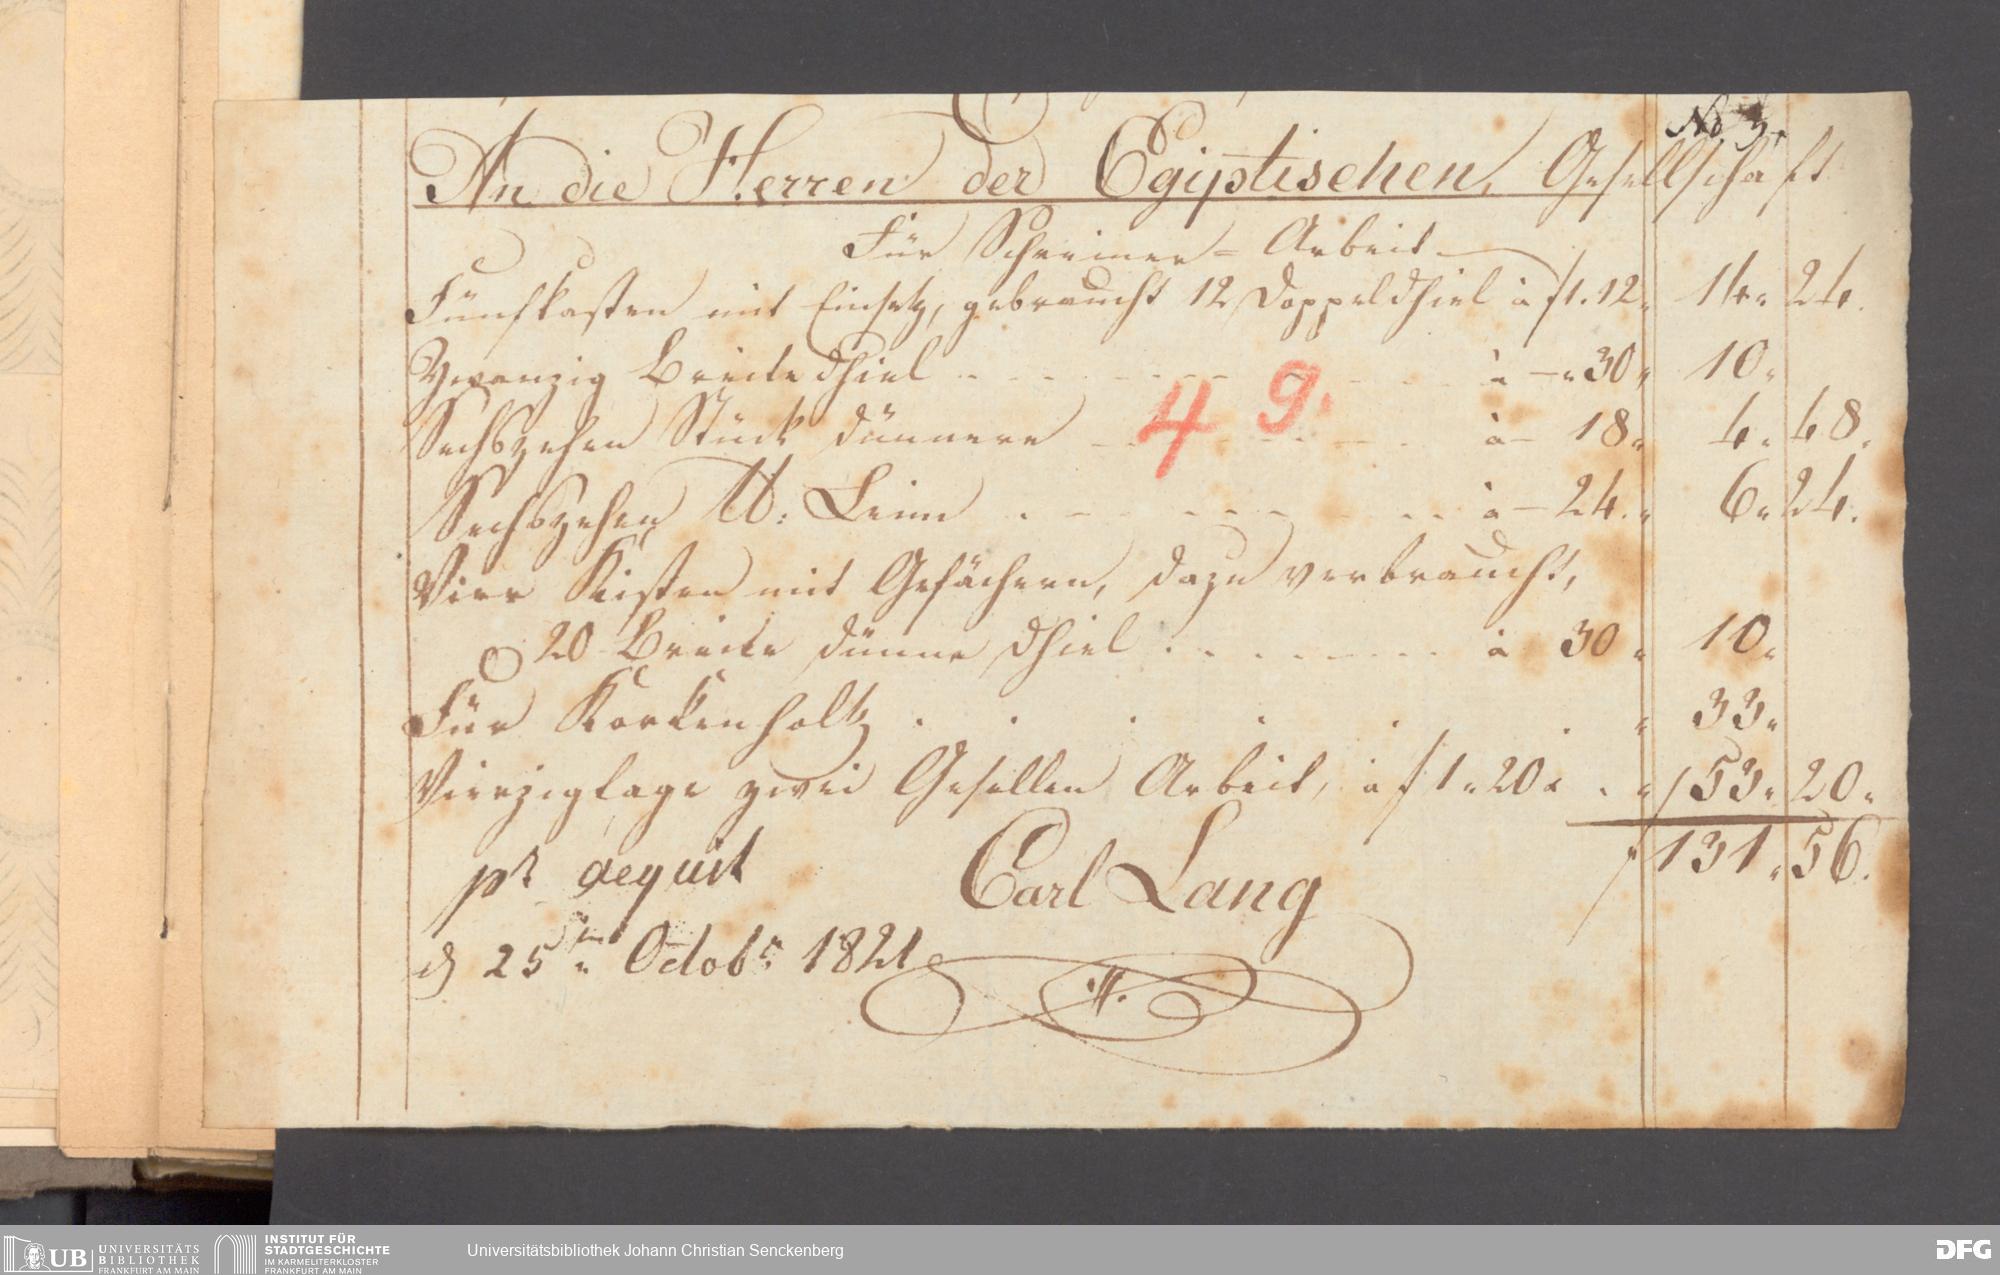 No 3.
An die Herren der Egiptischen Gesellschaft
Für Schreiner=Arbeit
Fünfkasten mit Einsetz, gebraucht 12 Doppeldhiel à f 1. 12„ 14„ 24.
Zwanzig Breite dhiel . . . à —„ 30„ 10„
Sechszehen Stück dünnere . . . à — 18„ 4„ 48„
49.
Sechszehen ℔: Leim . . . à — 24.„ 6„ 24.
Vier Kisten mit Gefächern, dazu verbraucht,
20 Breite dünne dhiel . . . à 30„ 10„
Für Korkenholtz . . . „ 33„
Vierzigtage zwei Gesellen Arbeit, à f 1„ 20„ . „ 53„ 20„
f 131„ 56.
pr acquit Carl Lang
d 25ten Octobr 1821
UB UNIVERSITÄTS
BIBLIOTHEK
FRANKFURT AM MAIN
INSTITUT FÜR
STADTGESCHICHTE
IM KARMELITERKLOSTER
FRANKFURT AM MAIN
Universitätsbibliothek Johann Christian Senckenberg
DFG